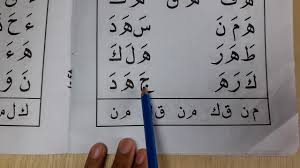 هَ مَ نَ سَ هَ دَ
طَ هَ رَ هَ لَ كَ
كَ رَ هَ جَ هَ دَ نَ وَ
م ن ق ك م ن ق م ن ك ل م ن